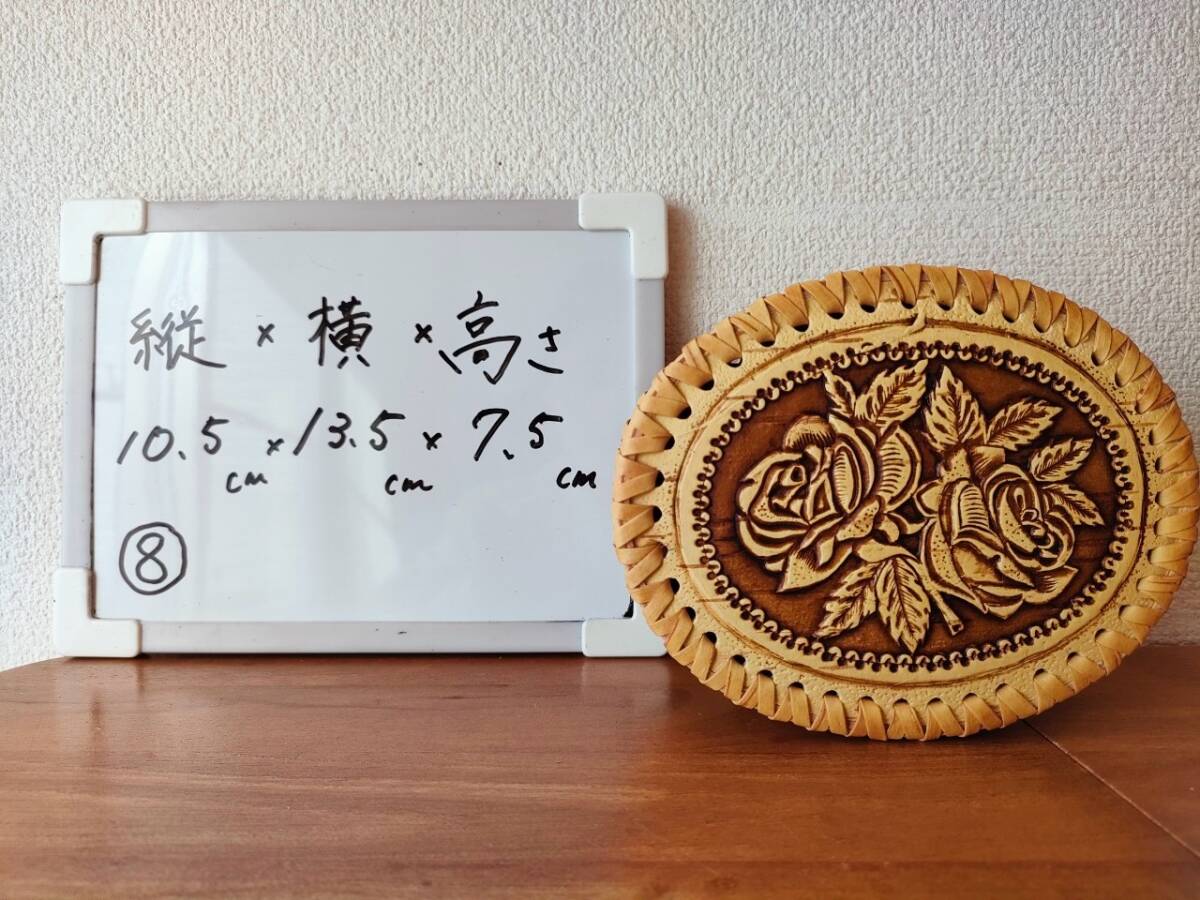 縦×横×高さ
10.5cm×13.5cm×7.5cm
⑧